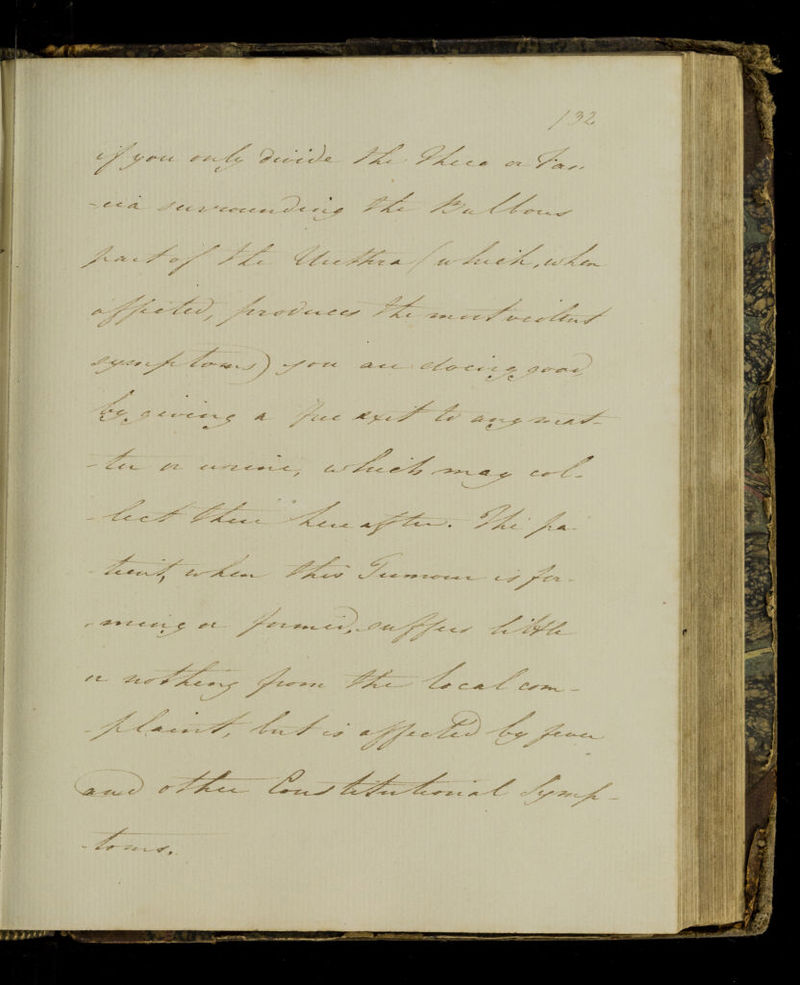 132
if you only divide the Theca or Fas-
-cia surrounding the Bulbous
part of the Urethra (which, when
affected, produces the most violent
symptoms) you are doing good,
by giving a free exit to any mat-
-ter or urine, which may col-
-lect there hereafter. The pa-
-tient, when this Tumour is for-
-ming or formed, suffers little
or nothing from the local com-
-plaint, but is affected by fever
and other Constitutional Symp-
-toms.